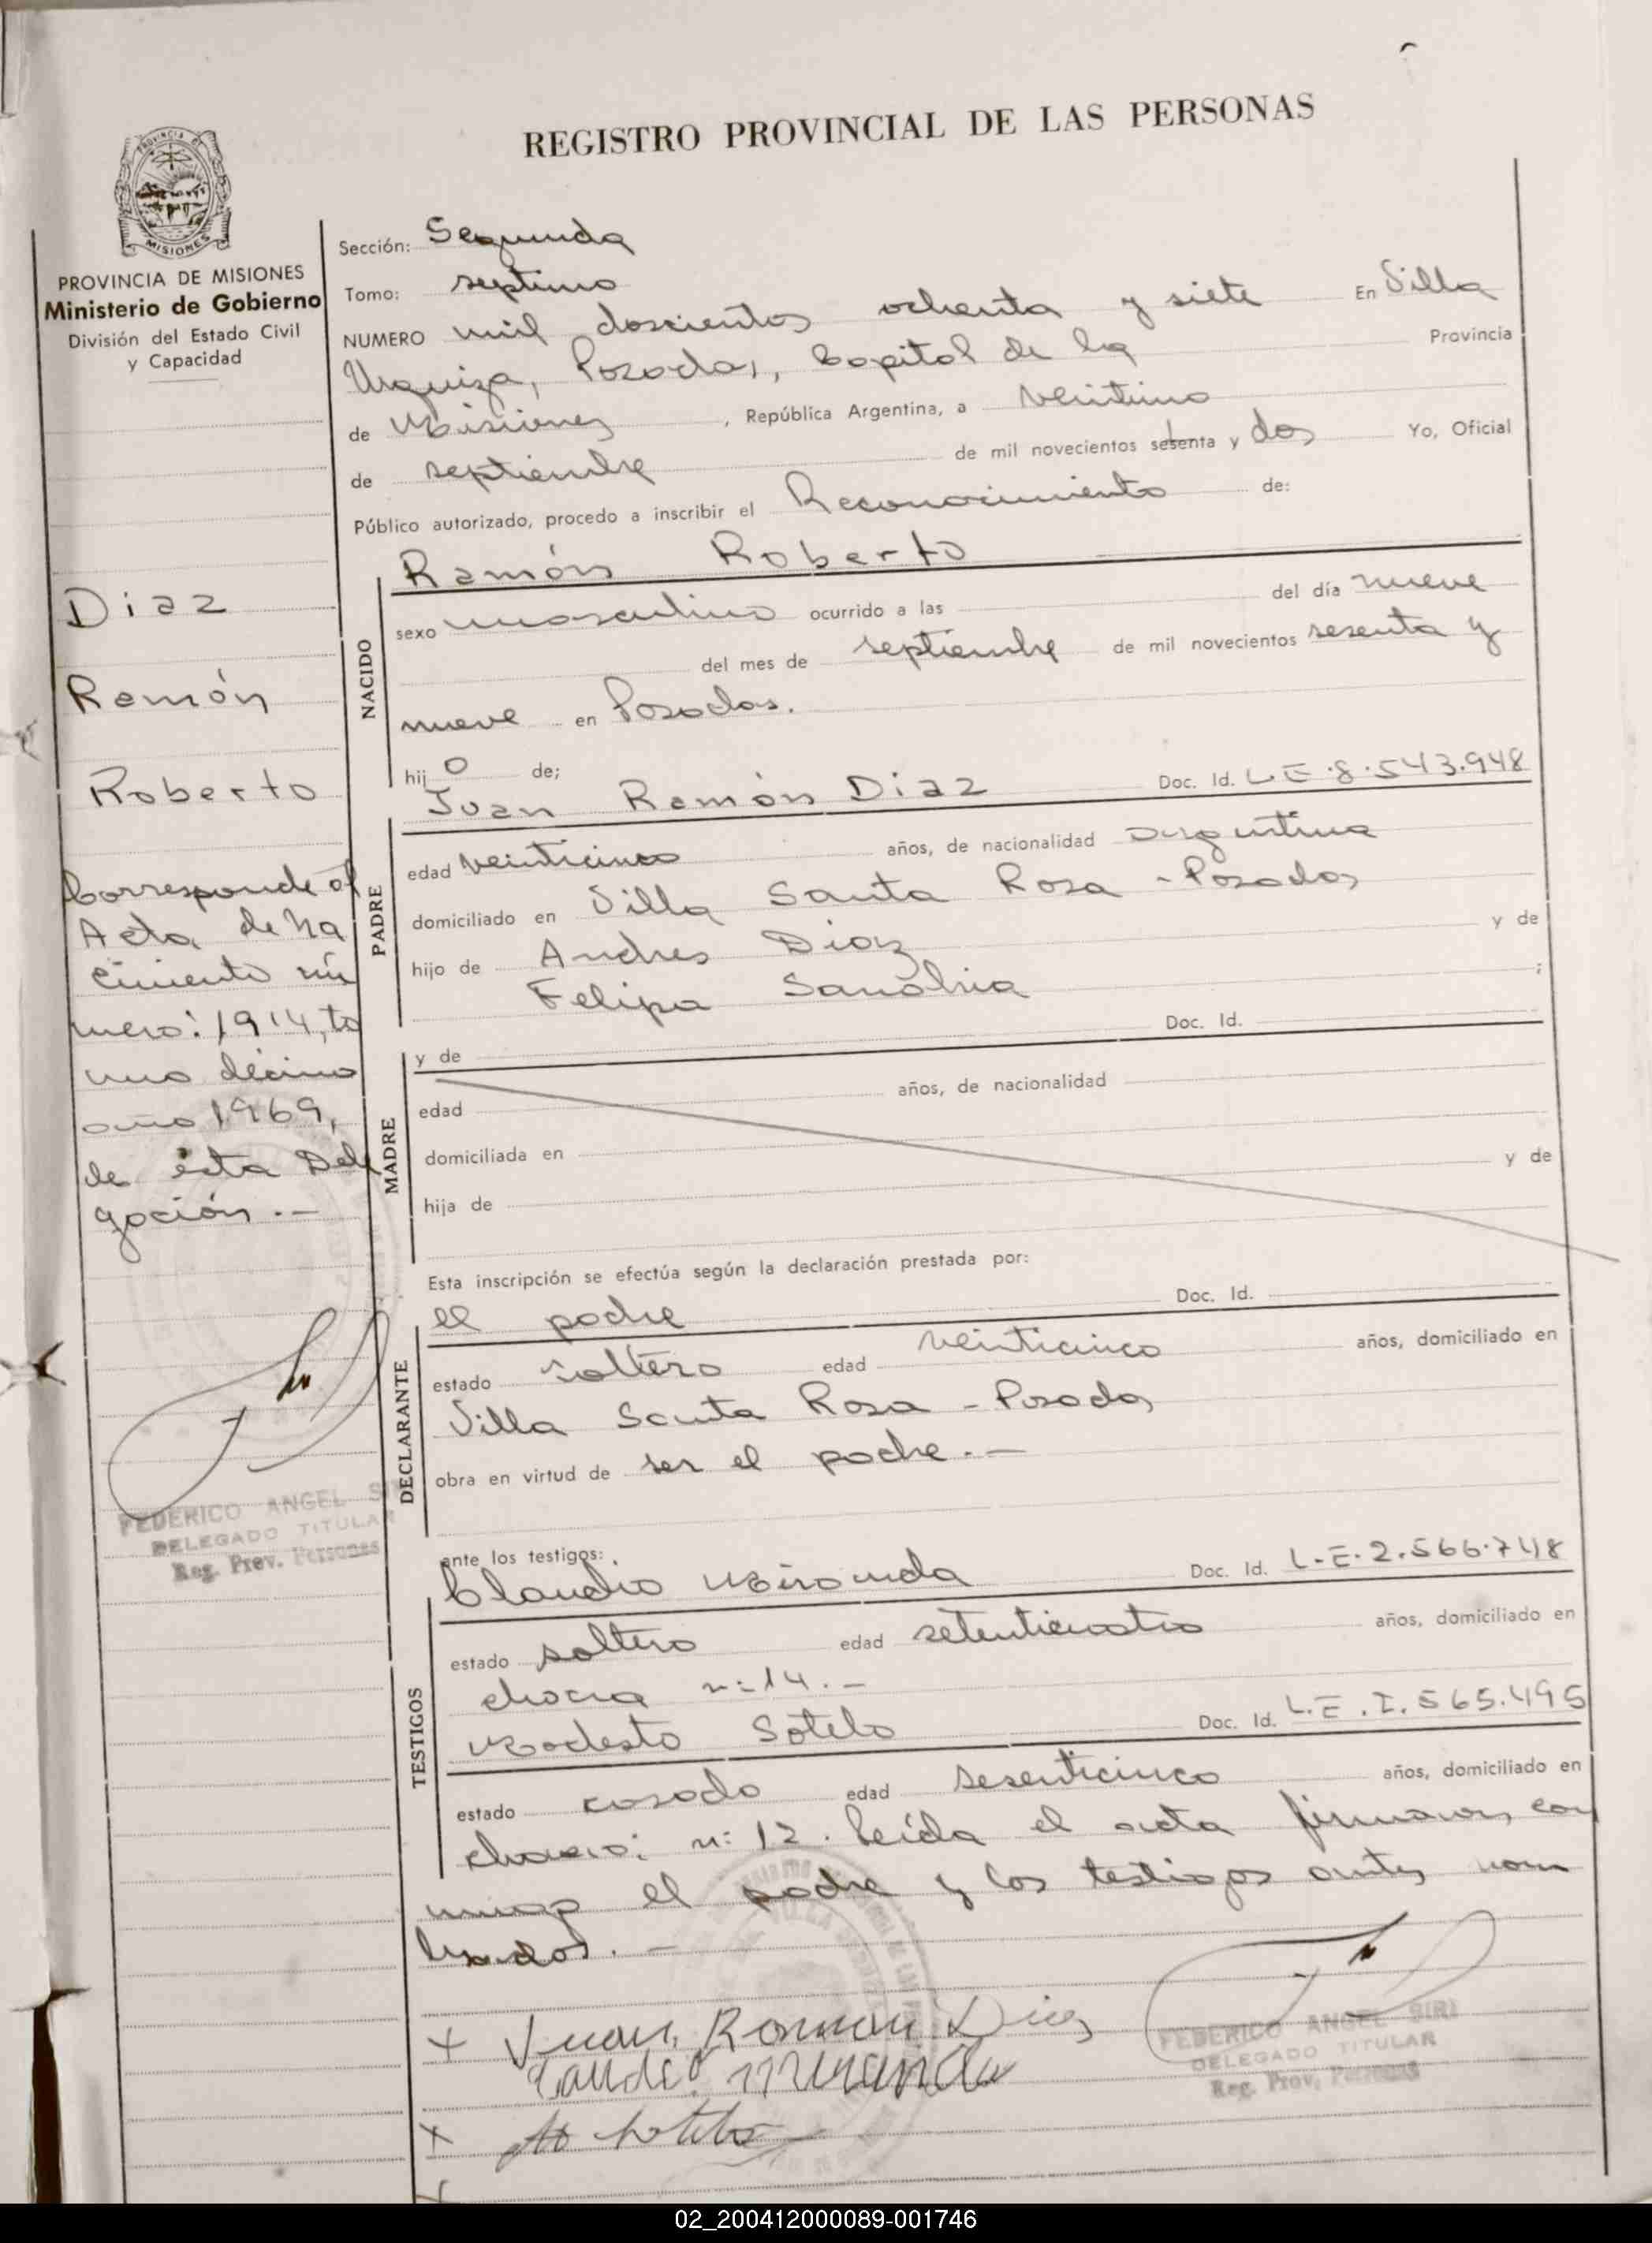 REGISTRO PROVINCIAL DE LAS PERSONAS
PROVINCIA DE MISIONES
MISIONES
PROVINCIA DE MISIONES
Ministerio de Gobierno
División del Estado Civil
y Capacidad
Diaz
Ramón
Roberto
Corresponde al
Acta de na
cimiento nú
mero: 1914, to
mo décimo
año 1969,
de ésta Dele
gación.-
FEDERICO ANGEL SIRI
DELEGADO TITULAR
Reg. Prov. Personas
Sección: Segunda
Tomo: septimo
NUMERO mil doscientos ochenta y siete En Villa
Urquiza, Posadas, Capital de la Provincia
de Misiones, República Argentina, a veintiuno
de septiembre de mil novecientos setenta y dos Yo, Oficial
Público autorizado, procedo a inscribir el Reconocimiento de:
Ramón Roberto
NACIDO
sexo masculino ocurrido a las del día nueve
del mes de septiembre de mil novecientos sesenta y
nueve en Posadas.
hijo de;
Juan Ramón Diaz Doc. Id. L.E.8.543.948
PADRE
edad veinticinco años, de nacionalidad argentina
domiciliado en Villa Santa Rosa - Posadas
hijo de Andres Diaz y de
Felipa Sanabria ;
y de Doc. Id.
MADRE
edad años, de nacionalidad
domiciliada en
hija de y de
Esta inscripción se efectúa según la declaración prestada por:
el padre Doc. Id.
DECLARANTE
estado soltero edad veinticinco años, domiciliado en
Villa Santa Rosa - Posadas
obra en virtud de ser el padre.-
ante los testigos:
Claudio Miranda Doc. Id. L.E.2.566.748
TESTIGOS
estado soltero edad setenticuatro años, domiciliado en
chacra n: 14.-
Modesto Sotelo Doc. Id. L.E.I.565.495
estado casado edad sesenticinco años, domiciliado en
chacra: n: 12. Leída el acta firman con
migo el padre y los testigos antes nom
brados.-
+ Juan Ramon Diaz
Claudio Miranda
+ Sotelo
FEDERICO ANGEL SIRI
DELEGADO TITULAR
Reg. Prov. Personas
02_200412000089-001746